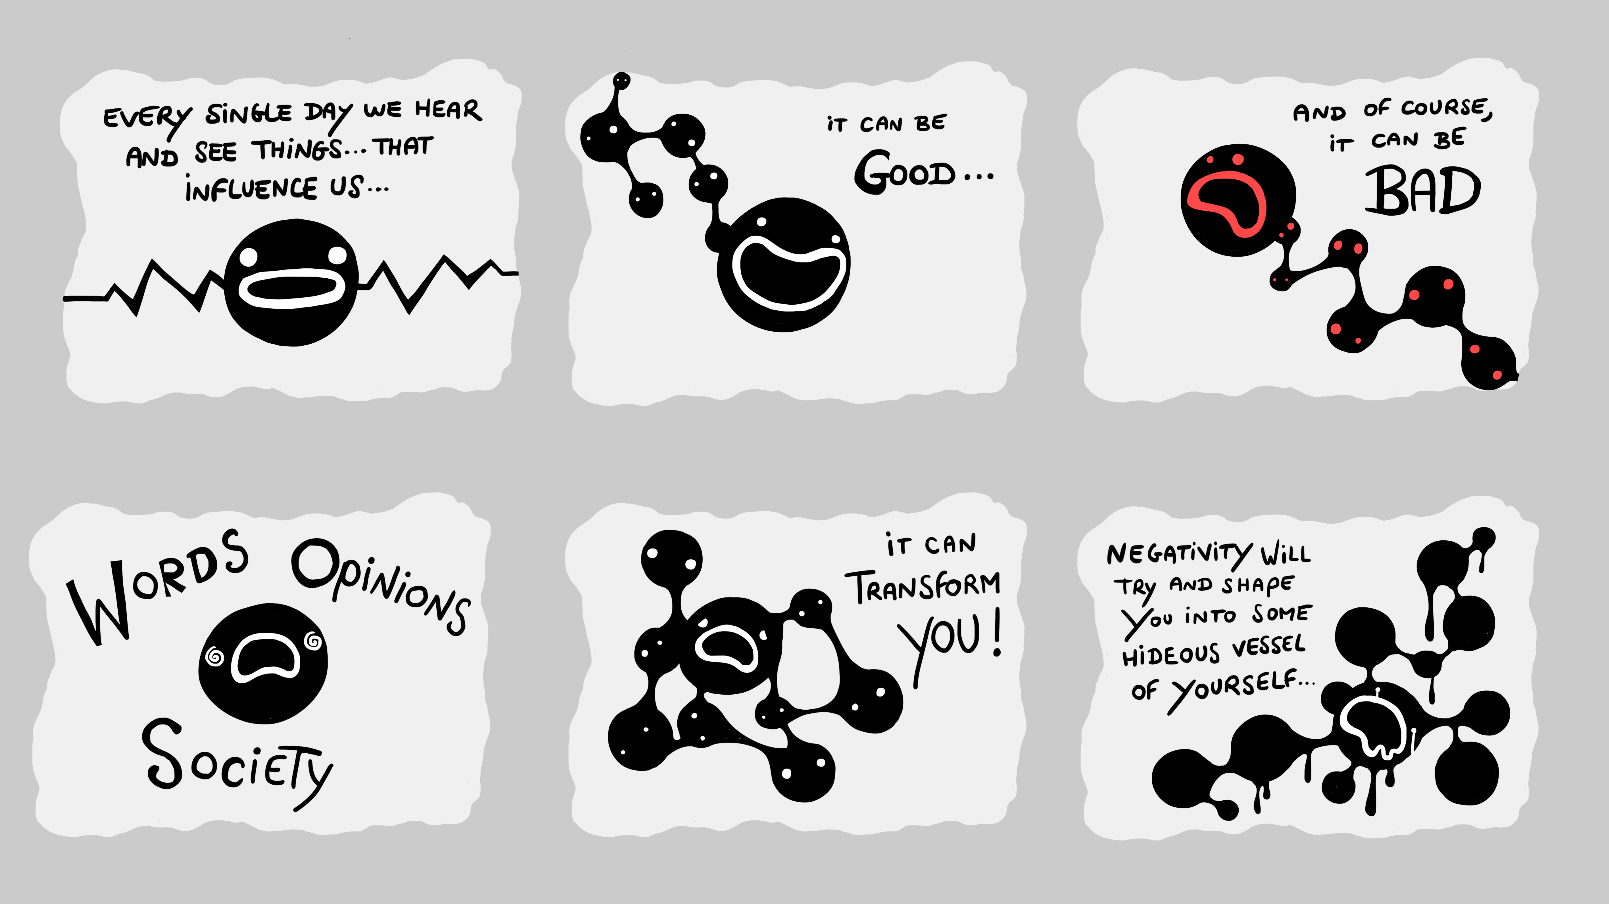 EVERY SINGLE DAY WE HEAR
AND SEE THINGS... THAT
INFLUENCE US...
IT CAN BE
GOOD...
AND OF COURSE,
IT CAN BE
BAD
WORDS OPINIONS
SOCIETY
IT CAN
TRANSFORM
YOU!
NEGATIVITY WILL
TRY AND SHAPE
YOU INTO SOME
HIDEOUS VESSEL
OF YOURSELF...